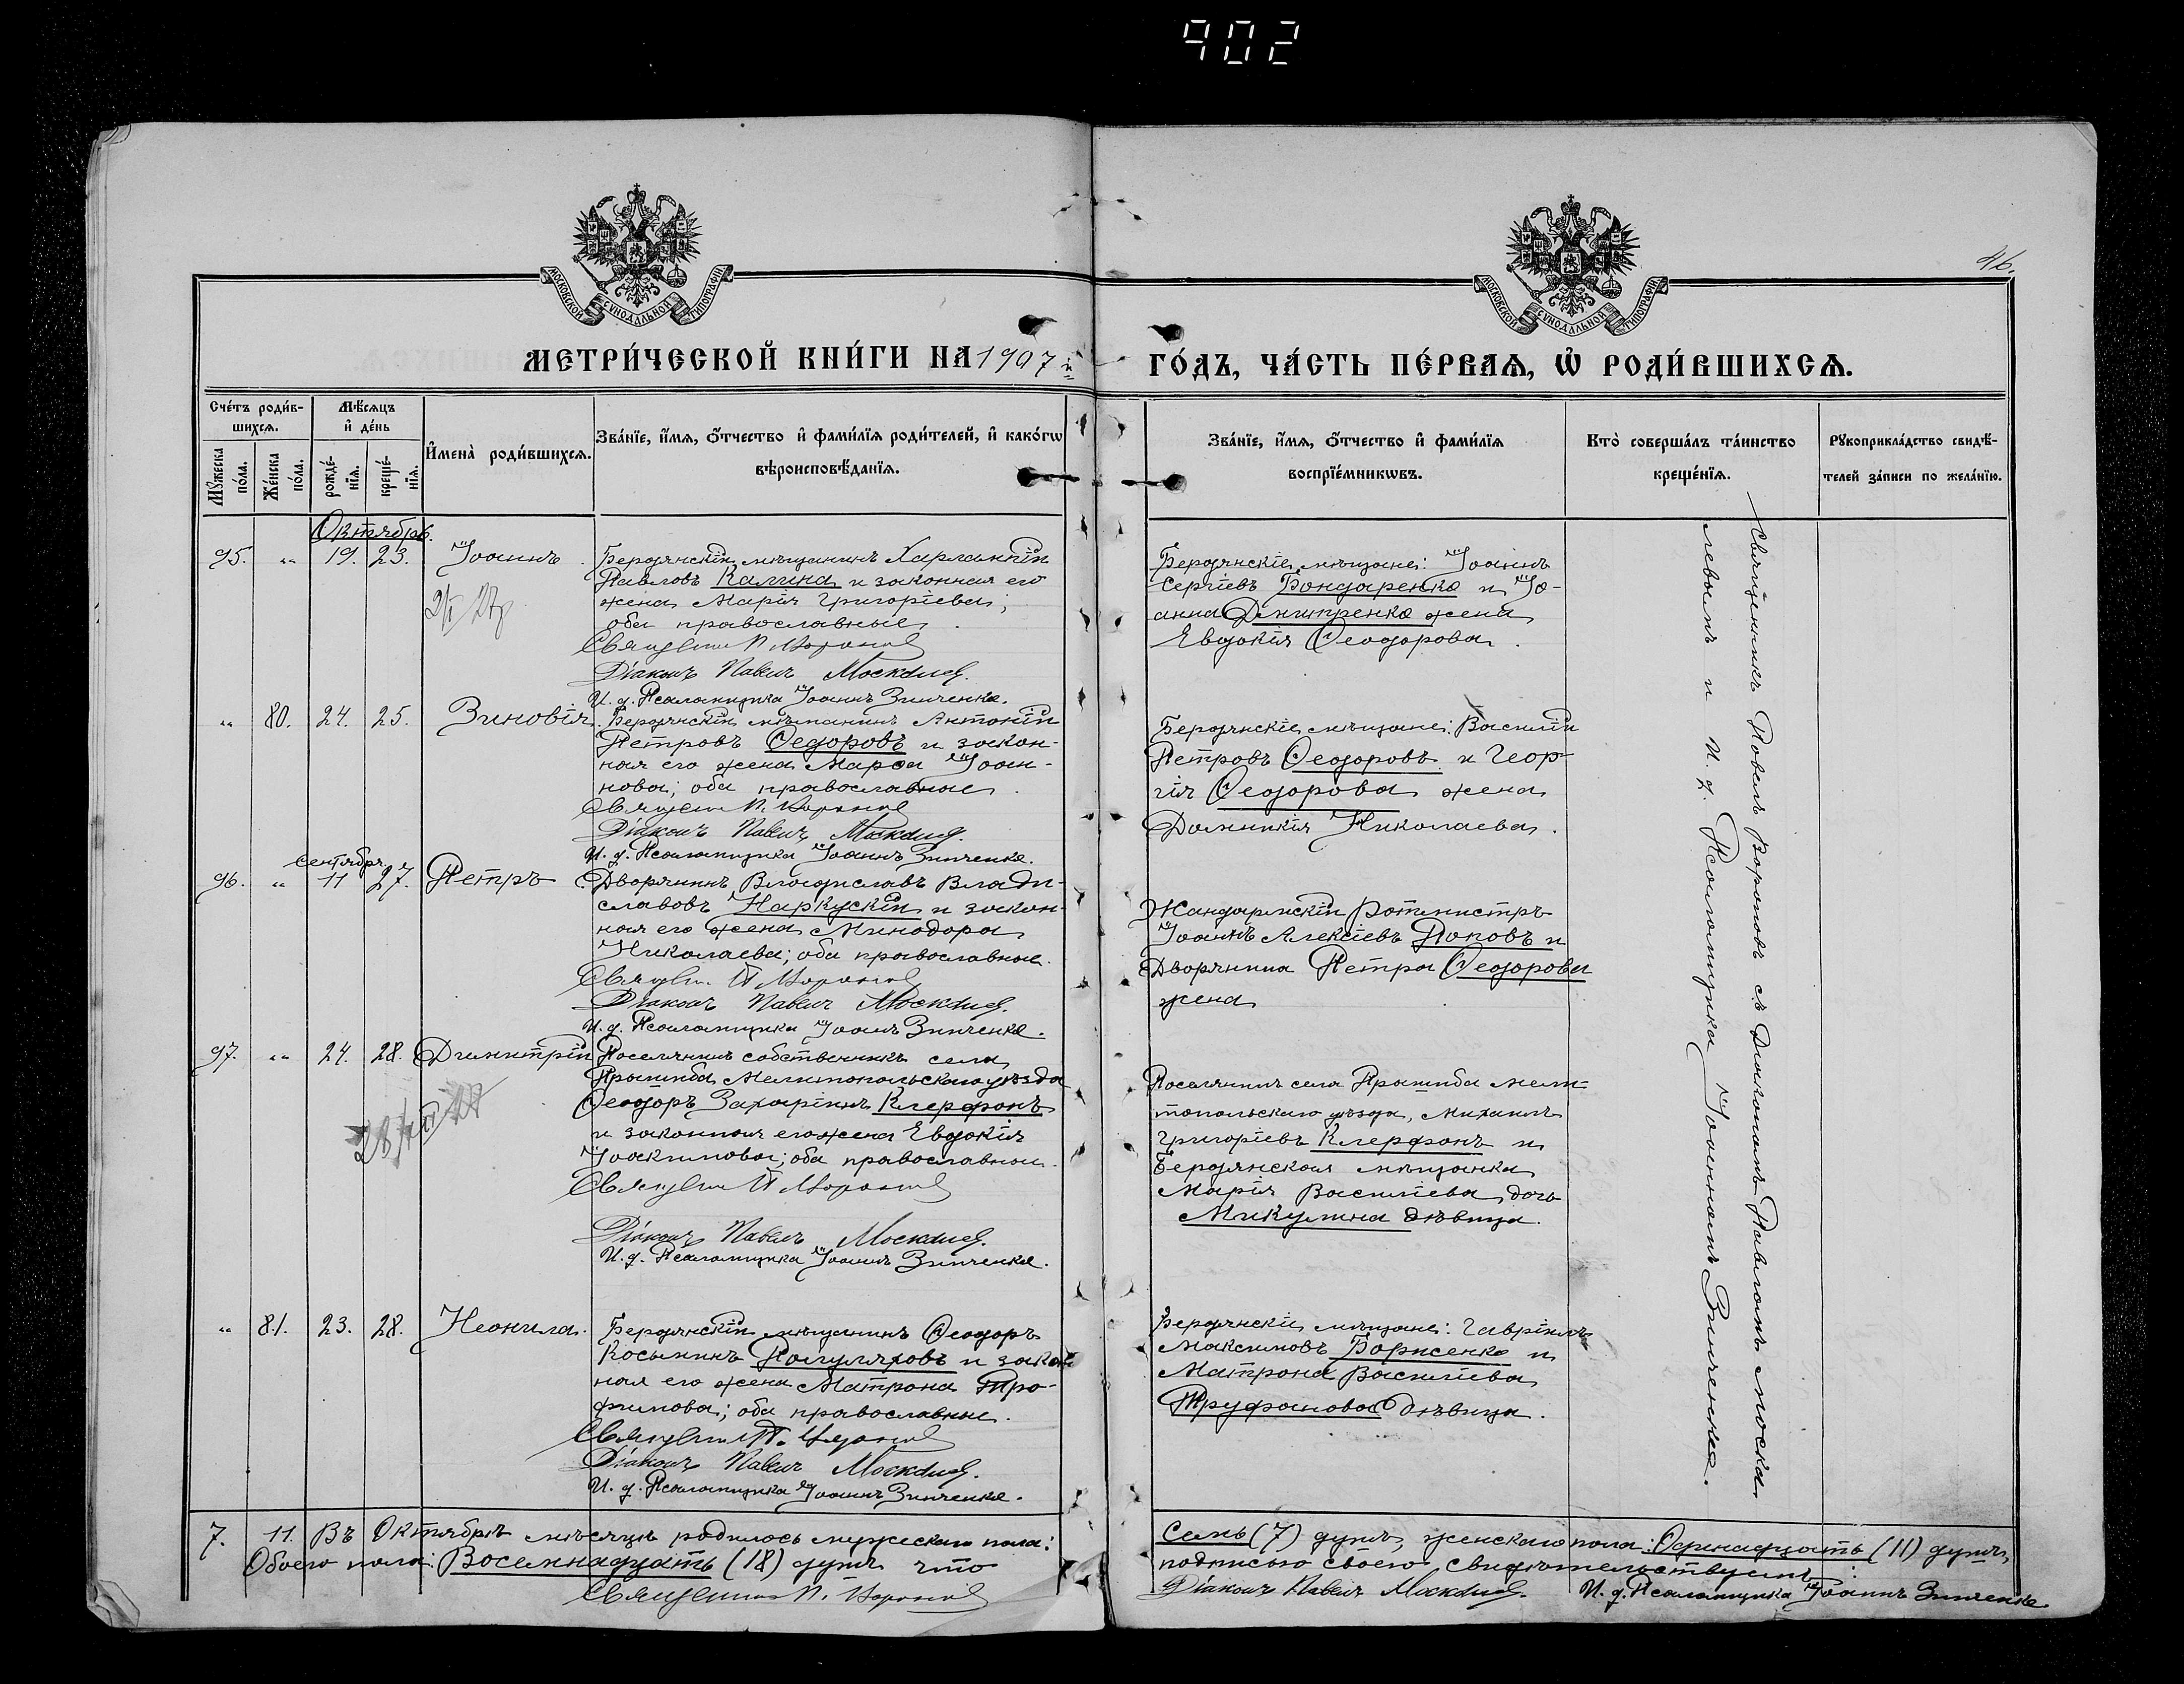 902
46.
МОСКОВСКОЙ СУНОДАЛЬНОЙ ТИПОГРАФІИ
МОСКОВСКОЙ СУНОДАЛЬНОЙ ТИПОГРАФІИ
МЕТРИ́ЧЕСКОЙ КНИ́ГИ НА 1907 й
ГО́ДЪ, ЧА́СТЬ ПЕ́РВАѦ, Ѽ РОДИ́ВШИХСѦ.
Сче́тъ роди́в-
шихсѧ.
Мꙋжеска по́ла.
Же́нска по́ла.
Мѣ́сѧцъ
и҆ де́нь
рожде́-
нїѧ.
креще́-
нїѧ.
И҆мена̀ роди́вшихсѧ.
Зва́нїе, и҆́мѧ, ѻ҆́тчество и҆ фами́лїѧ роди́телей, и҆ како́гѡ
вѣроисповѣ́данїѧ.
Зва́нїе, и҆́мѧ, ѻ҆́тчество и҆ фами́лїѧ
воспрїе́мникѡвъ.
Кто̀ соверша́лъ та́инство
креще́нїѧ.
Рꙋкоприкла́дство свидѣ́-
телей за́писи по жела́нїю.
Октябрь.
95. „ 19. 23. Іоаннъ.
Бердянскій мѣщанинъ Харлампій
Павловъ Калина и законная его
жена Марія Григоріева;
оба православные.
Священникъ П. Воронов
Діаконъ Павелъ Москалев.
И. д. Псаломщика Іоаннъ Зинченко.
Бердянскіе мѣщане: Іоаннъ
Сергіевъ Бондаренко и Іо-
анна Дмитренко жена
Евдокія Ѳеодорова.
„ 80. 24. 25. Зиновія.
Бердянскій мѣщанинъ Антоній
Петровъ Ѳедоровъ и закон-
ная его жена Марѳа Іоан-
нова; оба православные.
Священ. П. Воронов
Діаконъ Павелъ Москалев.
И. д. Псаломщика Іоаннъ Зинченко.
Бердянскіе мѣщане: Василій
Петровъ Ѳеодоровъ и Геор-
гія Ѳеодорова жена
Домникія Николаева.
сентября
96. „ 11 27. Петръ
Дворянинъ Владиславъ Влади-
славовъ Наркускій и закон-
ная его жена Минодора
Николаева; оба православные.
Священ. П. Воронов
Діаконъ Павелъ Москалев.
И. д. Псаломщика Іоаннъ Зинченко.
Жандармскій Ротмистръ
Іоаннъ Алексіевъ Поповъ и
Дворянина Петра Ѳеодорова
жена
97. „ 24. 28. Димитрій
Поселянинъ собственникъ села
Пришиба Мелитопольскаго уѣзда
Ѳеодоръ Захаріинъ Клерфонъ
и законная его жена Евдокія
Іоакимова; оба православные.
Священ. П. Воронов
Діаконъ Павелъ Москалев.
И. д. Псаломщика Іоаннъ Зинченко.
Поселянинъ села Пришиба Мели-
топольскаго уѣзда, Михаилъ
Григоріевъ Клерфонъ и
Бердянская мѣщанка
Марія Василіева дочь
Микулина дѣвица.
„ 81. 23. 28. Неонила.
Бердянскій мѣщанинъ Ѳеодоръ
Косьминъ и закон-
ная его жена Матрона Тро-
фимова; оба православные.
Священ. П. Воронов
Діаконъ Павелъ Москалев.
И. д. Псаломщика Іоаннъ Зинченко.
Бердянскіе мѣщане: Гавріилъ
Максимовъ Борисенко и
Матрона Василіева
Труфанова дѣвица.
Священникъ Павелъ Вороновъ съ Діакономъ Павломъ Моска-
левымъ и И. д. Псаломщика Іоанномъ Зинченко.
7. 11. Въ Октябрѣ мѣсяцѣ родилось мужескаго пола:
Семь (7) душъ, женскаго пола: Одинадцать (11) душъ,
Обоего пола: Восемнадцать (18) душъ что
подписью своею свидѣтельствуемъ:
Священник П. Воронов
Діаконъ Павелъ Москалев.
И. д. Псаломщика Іоаннъ Зинченко